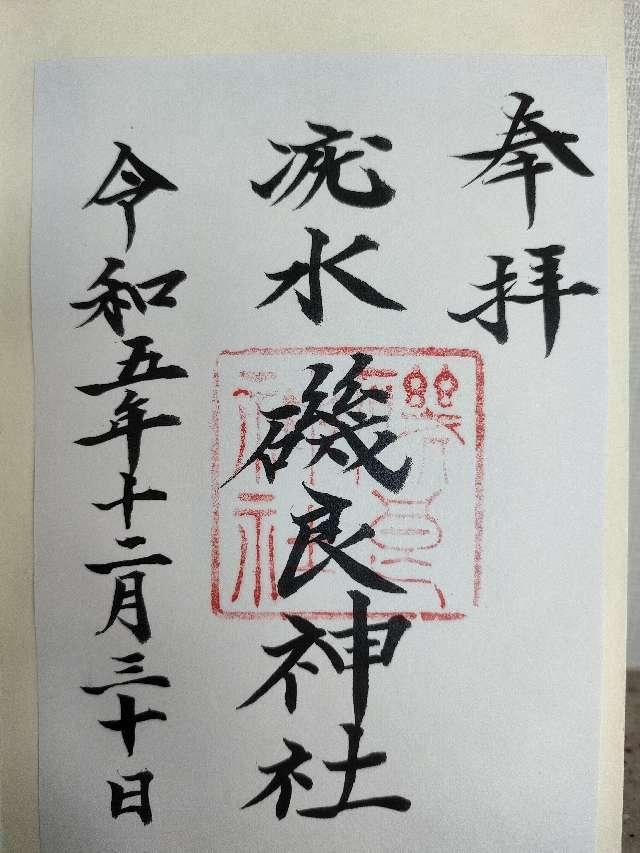 奉拝
疣水磯良神社
磯良
神社
令和五年十二月三十日